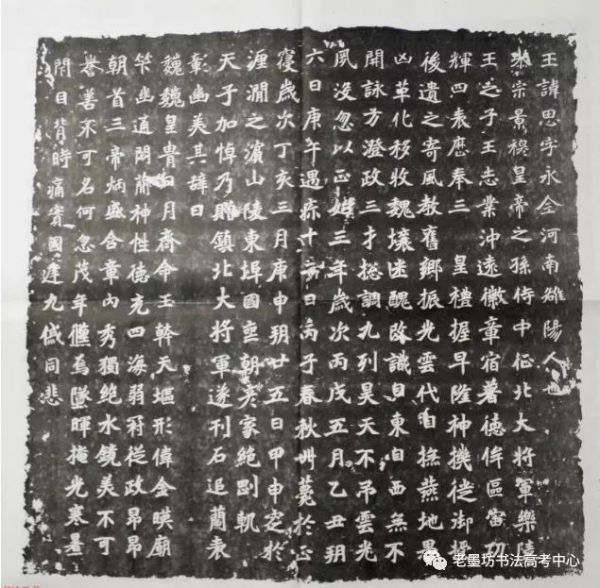 王諱思字永全河南雒陽人也
恭宗景穆皇帝之孫侍中征北大將軍樂陵
王之子王志業沖遠徽章宿著德侔區宙功
輝四表歷奉三皇禮握早隆神機徙御擢
後遺之寄風教舊鄉振光雲代自撫燕地眾
凶革化移牧魏壤迷醜改識自東自西無不
開詠方澄政三才摠調九列昊天不弔雲光
夙沒忽以正始三年歲次丙戌五月乙丑朔
六日庚午遇疹十二日丙子春秋卌薨於正
寢歲次丁亥三月庚申朔廿五日甲申窆於
瀍澗之濱山陵東埠國喪朝彥家絕剛軌
天子加悼乃贈鎮北大將軍遂刊石追蘭表
彰幽美其辭曰
巍巍皇胄日月齊命玉幹天堀形偉金暎廟
竿幽通閉蘭神性德充四海弱冠從政昂昂
朝首三帝炳盛含章內秀獨絕水鏡美不可
譽善不可名何忽茂年儷焉墜暉指光寒墨
閈目背時痛賓國逢九慽同悲
老墨坊书法高考中心